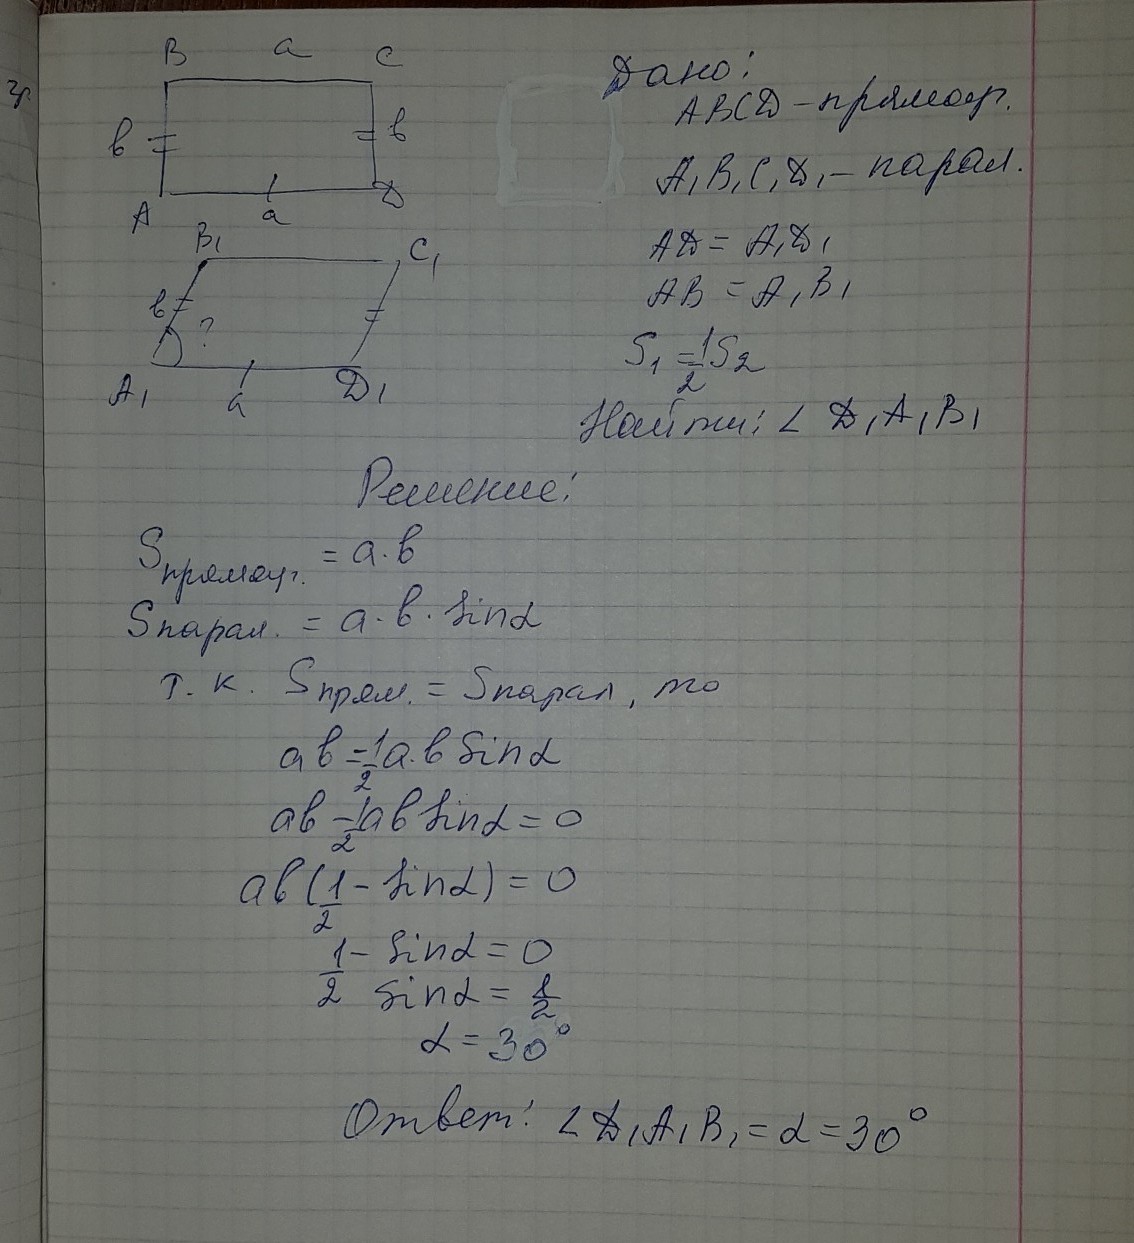 B a C
b b
A a D
B₁ C₁
b ?
A₁ a D₁
Дано:
ABCD - прямоуг.
A₁B₁C₁D₁ - парал.
AD = A₁D₁
AB = A₁B₁
S₁ = 1/2 S₂
Найти: ∠ D₁A₁B₁
Решение:
Sпрямоуг. = a·b
Sпарал. = a·b·sinα
т. к. Sпрям. = Sпарал, то
ab = 1/2 a·b sinα
ab - 1/2 ab sinα = 0
ab(1/2 - sinα) = 0
1/2 - sinα = 0
sinα = 1/2
α = 30°
Ответ: ∠ D₁A₁B₁ = α = 30°